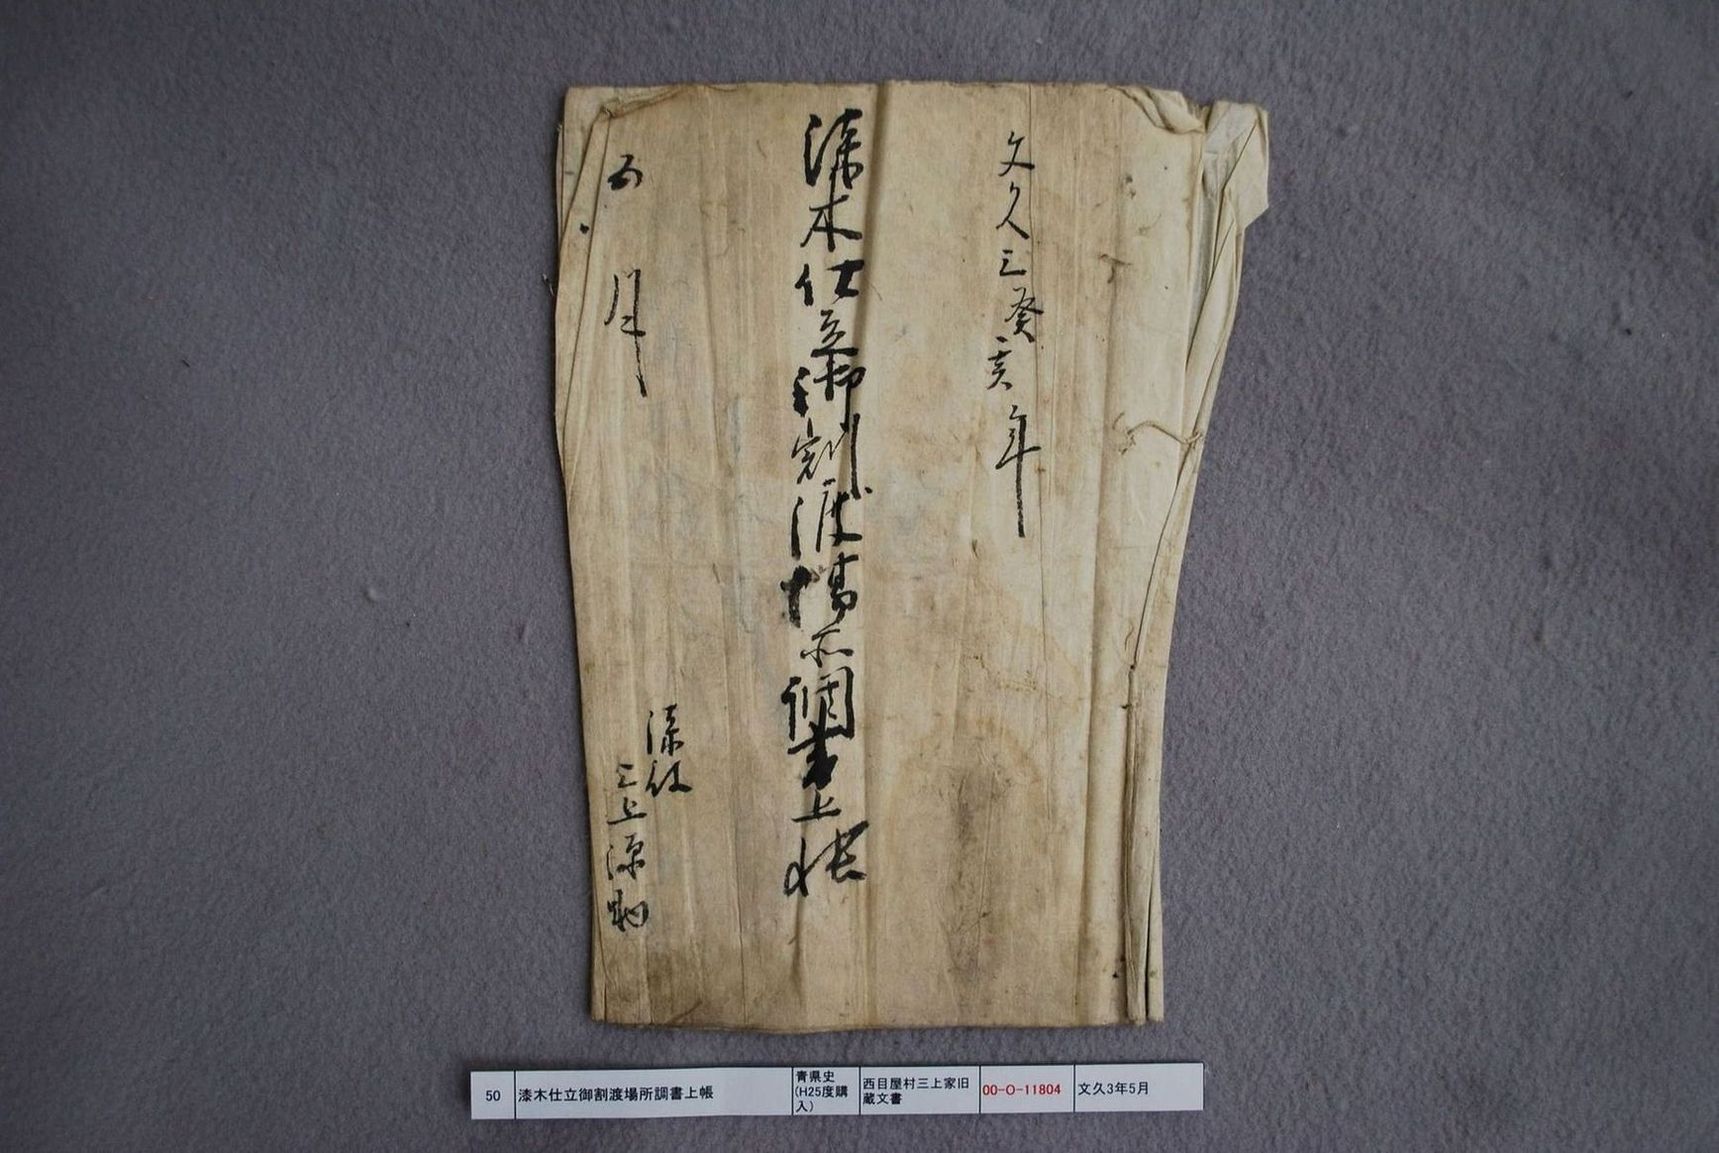 文久三癸亥年
漆木仕立御割渡場所調書上帳
五月
漆役
三上源助
50
漆木仕立御割渡場所調書上帳
青県史
(H25度購
入)
西目屋村三上家旧
蔵文書
00-O-11804
文久3年5月